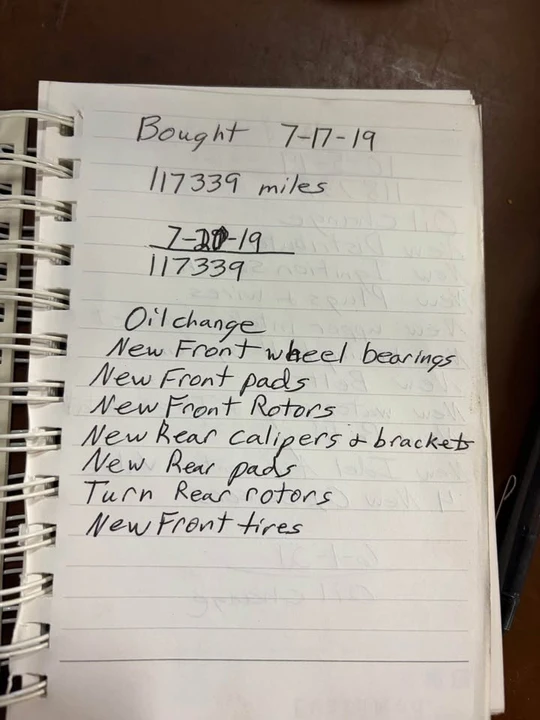 Bought 7-17-19
117339 miles
7-20-19
117339
Oil change
New Front wheel bearings
New Front pads
New Front Rotors
New Rear calipers & brackets
New Rear pads
Turn Rear rotors
New Front tires